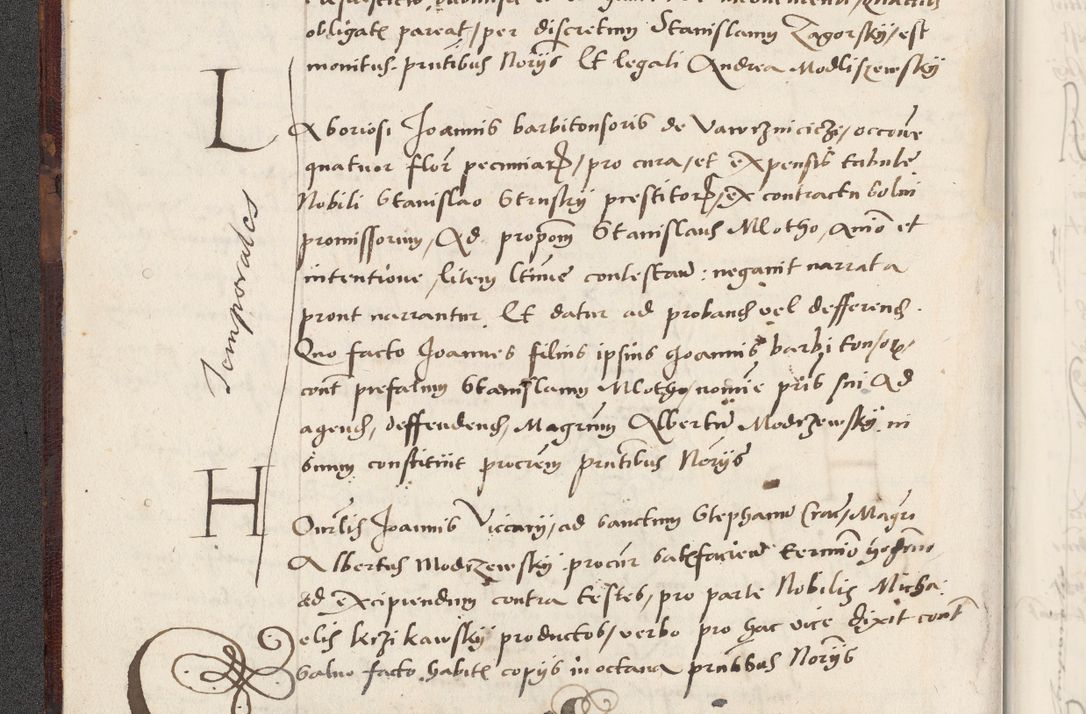 obligatus pareat, per discretum Stanislaum Zagorsky, est
monitus. pntibus Norijs Et legali Andrea Modliszewskÿ
Laboriosi Joannis barbitonsoris de Vawrzinicizi, occone
quatuor flor pecuniar, pro cura, et expensis tabule
Nobili Stanislao Strusky prestitor, ex contractu solui
promissorum, Ad propom Stanislaus Mlotho, Animo et
intentione, litem ltime contestan: negauit narrata
prout narrantur. Et datur ad proband vel defferend.
Quo facto Joannes filius ipsius Joannis barbitonsor,
cont prefatum Stanislaum Mlotho, nomie pris sui Ad
agend, deffendend, Magrum Albertum Modrzewskÿ in
suum constituit procrem pntibus Norijs
Temporales
Honrlis Joannis Viccarij, ad sanctum Stephanum Crac, Magri
Albertus Modrzewskÿ procur satisfaciend termio hodierno
ad Excipiendum contra testes, pro parte Nobilis Micha
elis krzikawskÿ productos, verbo pro hac vice dixit cont
Saluo facto habitis copijs in octaua pntibus Norijs